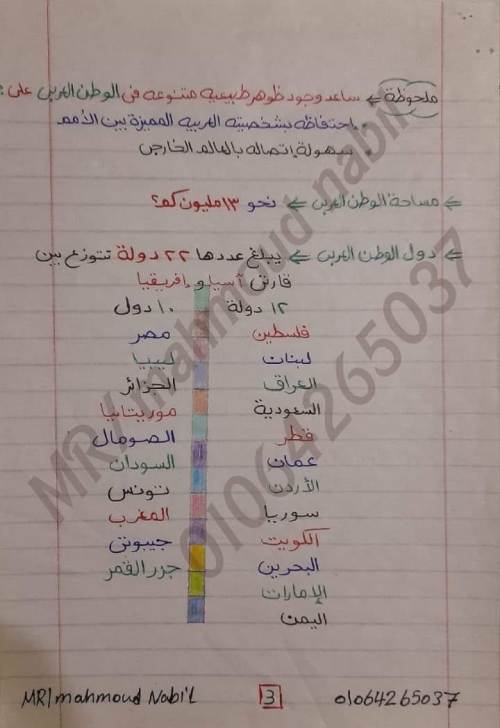 ملحوظة ⇐ ساعد وجود ظواهر طبيعيه متنوعه فى الوطن العربى على:
. احتفاظه بشخصيته العربيه المميزة بين الأمم
. سهولة إتصاله بالعالم الخارجى
⇐ مساحة الوطن العربى ⇐ نحو ١٣ مليون كم٢
⇐ دول الوطن العربى ⇐ يبلغ عددها ٢٢ دولة تتوزع بين
قارتى آسيا و إفريقيا
١٢ دولة ١٠ دول
فلسطين مصر
لبنان ليبيا
العراق الجزائر
السعودية موريتانيا
قطر الصومال
عمان السودان
الأردن تونس
سوريا المغرب
الكويت جيبوتى
البحرين جزر القمر
الإمارات
اليمن
MR/ mahmoud nabil
01064265037
MR/ mahmoud Nabi'L 3 01064265037